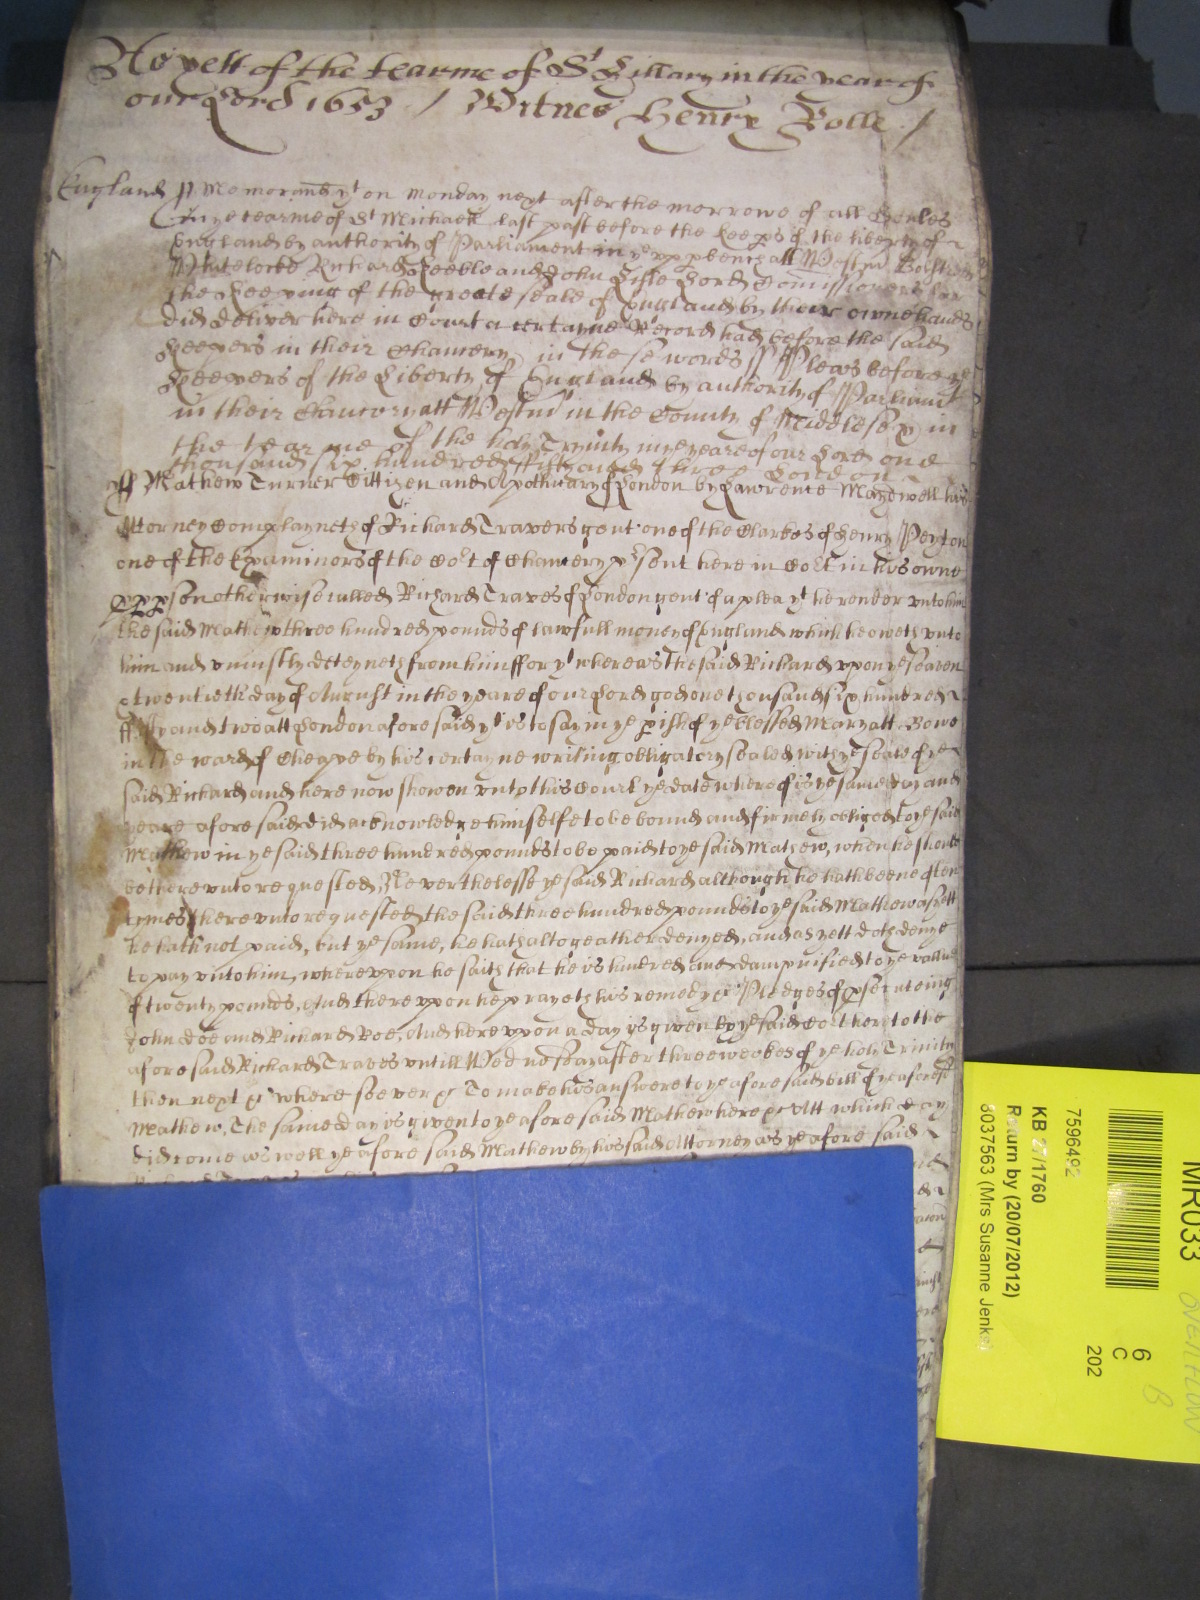 As yett of the tearme of St Hillary in the yeare of
our Lord 1653 / Witnes Henry Rolle /
England ss Memorand yt on Monday next after the morrowe of all Soules
in ye tearme of St Michaell last past before the keeps of the liberty of
England by authority of Parliament in ye upp bench att Westm Bolstrode
Whitelocke Richard Keeble and John Lisle Lords Comissioners for
the keeping of the greate seale of England by their owne hands
did deliver here in Court a certayne Record had before the said
keepers in their Chancery in these words ss Pleas before ye
Keepers of the Liberty of England by authority of Parliamt
in their Chancery att Westm in the County of Middlesex in
the tearme of the holy Trynity in ye yeare of our Lord one
thousand six hundred fifty and three London
ss Mathew Turner Cittizen and Apothicary of London by Lawrence Maydwell his
Attorney Complayneth of Richard Travers gent one of the Clarkes of Henry Peyton
one of the Examinors of the Cort of Chancery psent here in Cort in his owne
pper pson otherwise called Richard Traves of London gent of a plea yt he render unto him
the said Mathew three hundred pounds of lawfull money of England which he oweth unto
him and uniustly deteyneth from him ffor yt whereas the said Richard upon ye seaven
& twentieth day of August in the yeare of our Lord god one thousand six hundred
ffifty and twoo att London aforesaid yt is to say in ye pish of ye blessed Mary att Bowe
in the ward of Cheape by his certayne writing obligatory sealed with ye seale of ye
said Richard and here now showen unto this Court ye date whereof is ye same day and
yeare aforesaid did acknowledge himselfe to be bound and firmely obliged to ye said
Mathew in ye said three hundred pounds to be paid to ye said Mathew, when he should
bee thereunto requested, Neverthelesse ye said Richard although he hath beene often
tymes thereunto requested the said three hundred pounds to ye said Mathew as yett
he hath not paid, but ye same, he hath altogeather denyed, and as yett doth denye
to pay unto him, whereupon he saith that he is hindred and dampnified to ye vallue
of twenty pounds, And thereuppon he prayeth his remedy &c Pledges of psecuteing
John doe and Richard Roe, And hereuppon a day is given by ye said Cort here to the
aforesaid Richard Traves untill Wednesday after three weekes of ye holy Trinity
then next &c wheresoever &c To make his answere to ye aforesaid bill of ye aforesd
Mathew, The same day is given to ye aforesaid Mathew here &c Att which day
did come as well ye aforesaid Mathew by his said Attorney as ye aforesaid
MR033
7596492
KB 27/1760
Return by (20/07/2012)
8037563 (Mrs Susanne Jenks)
6
C
202
OVERFLOW
B